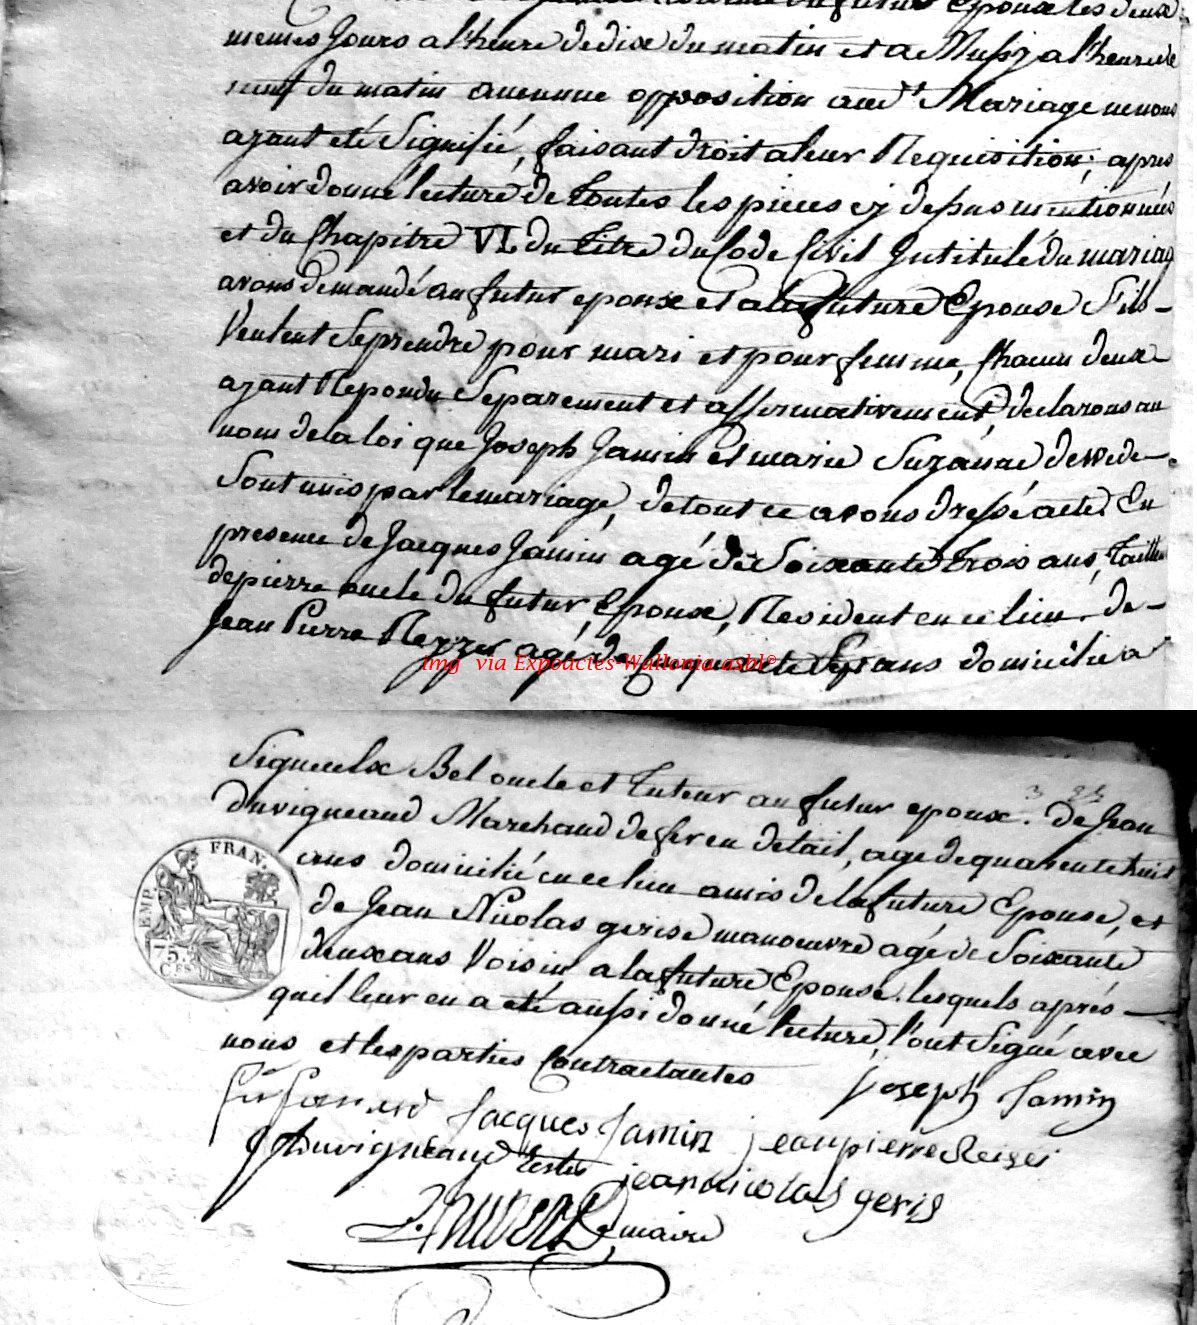 futur Epoux les deux
memes Jours a l'heure de dix du matin et a Mussy a l'heure de
neuf du matin aucunne opposition aud.t Mariage ne nous
ayant eté Signifié, faisant droit a leur Requisition; apres
avoir donné lecture de toutes les pieces cy dessus mentionnées
et du Chapitre VI du titre du Code Civil Intitulé du mariag
avons demandé au futur epoux et a la future Epouse S'ils
Veulent Se prendre pour mari et pour femme, Chacun deux
ayant Repondu Separement et affirmativement, declarons au
nom de la loi que Joseph Jamin et marie Suzanne
Sont unis par le mariage, de tout ce avons dressé acte. En
presence de Jacques Jamin agé de Soixante trois ans, tailleur
de pierre oncle du futur Epoux, Resident en ce lieu. de
Jean Pierre agé de Cinquante Sept ans domicilié a
img via Expoactes-Wallonia.asbl©
Signeulx Bel oncle et tuteur au futur epoux. de Jean
Duvigneaud Marchand de fer en detail, agé de quarente huit
ans domicilié en ce lieu amis de la future Epouse, et
de Jean Nicolas gerise manoeuvre agé de Soixante
deux ans Voisin a la future Epouse. lesquels aprés
quil leur en a eté aussi donné lecture, l'ont Signé avec
nous et les parties Contractantes Joseph Jamin
EMP. FRAN.
75
C.es
Jacques Jamin jean pierre Reiser
Duvigneaud jean nicolas geris
maire